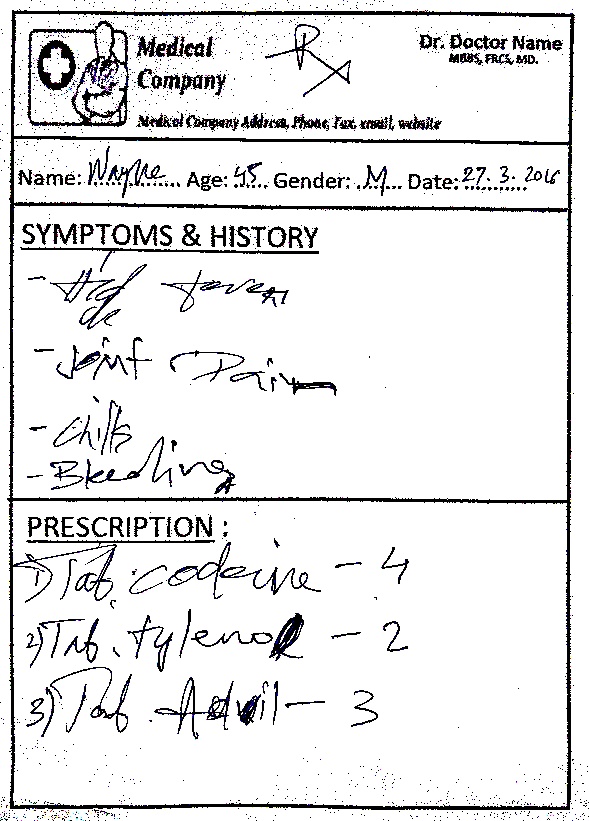 Medical
Company
Rx
Dr. Doctor Name
MBBS, FRCS, MD.
Medical Company Address, Phone, Fax, email, website
Name: Wayne Age: 45 Gender: M Date: 27.3.2016
SYMPTOMS & HISTORY
- High fever
- Joint Pain
- Chills
- Bleeding
PRESCRIPTION :
1) Tab. codeine - 4
2) Tab. tylenol - 2
3) Tab. Advil - 3